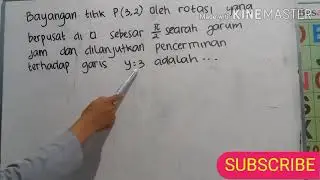 Bayangan titik P(3,2) oleh rotasi yang
berpusat di O sebesar π/2 searah jarum
jam dan dilanjutkan pencerminan
terhadap garis y=3 adalah ...
Made with KINEMASTER
SUBSCRIBE